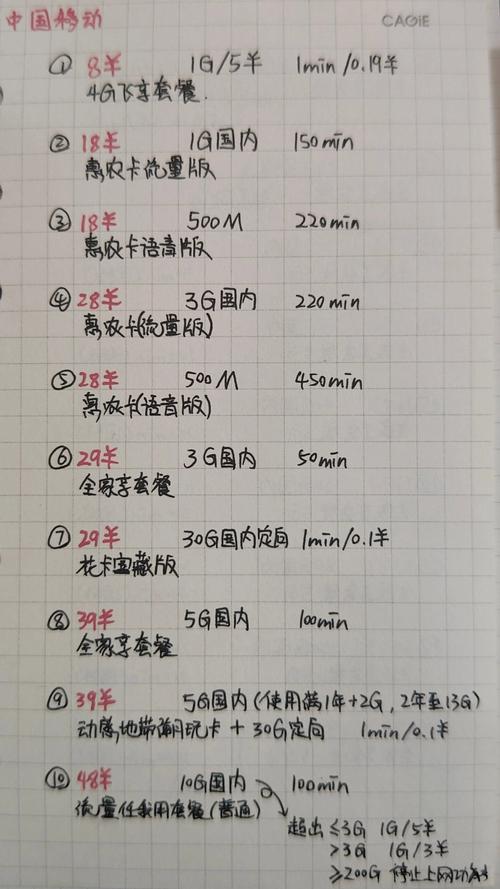 中国移动
CAGIE
① 8羊 1G/5羊 1min/0.19羊
4G飞享套餐.
② 18羊 1G国内 150min
惠农卡流量版
③ 18羊 500M 220min
惠农卡语音版
④ 28羊 3G国内 220min
惠农卡(流量版)
⑤ 28羊 500M 450min
惠农卡(语音版)
⑥ 29羊 3G国内 50min
全家享套餐
⑦ 29羊 30G国内定向 1min/0.1羊
花卡宝藏版
⑧ 39羊 5G国内 100min
全家享套餐
⑨ 39羊 5G国内(使用满1年+2G,2年至13G)
动感地带 玩卡 + 30G定向 1min/0.1羊
⑩ 48羊 10G国内 100min
流量任我用套餐(普通)
超出 ≤3G 1G/5羊
>3G 1G/3羊
≥200G 停止上网功